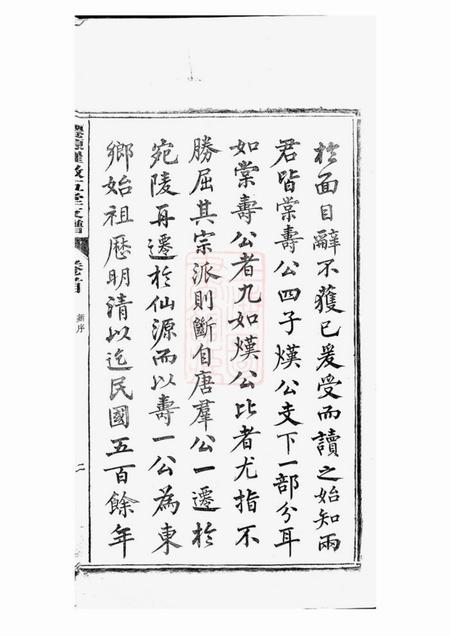 於面目辭不獲已爰受而讀之始知兩
君皆棠壽公四子熯公支下一部分耳
如棠壽公者九如熯公比者尤指不
勝屈其宗派則斷自唐羣公一遷於
宛陵再遷於仙源而以壽一公為東
鄉始祖歷明清以迄民國五百餘年
新序
二